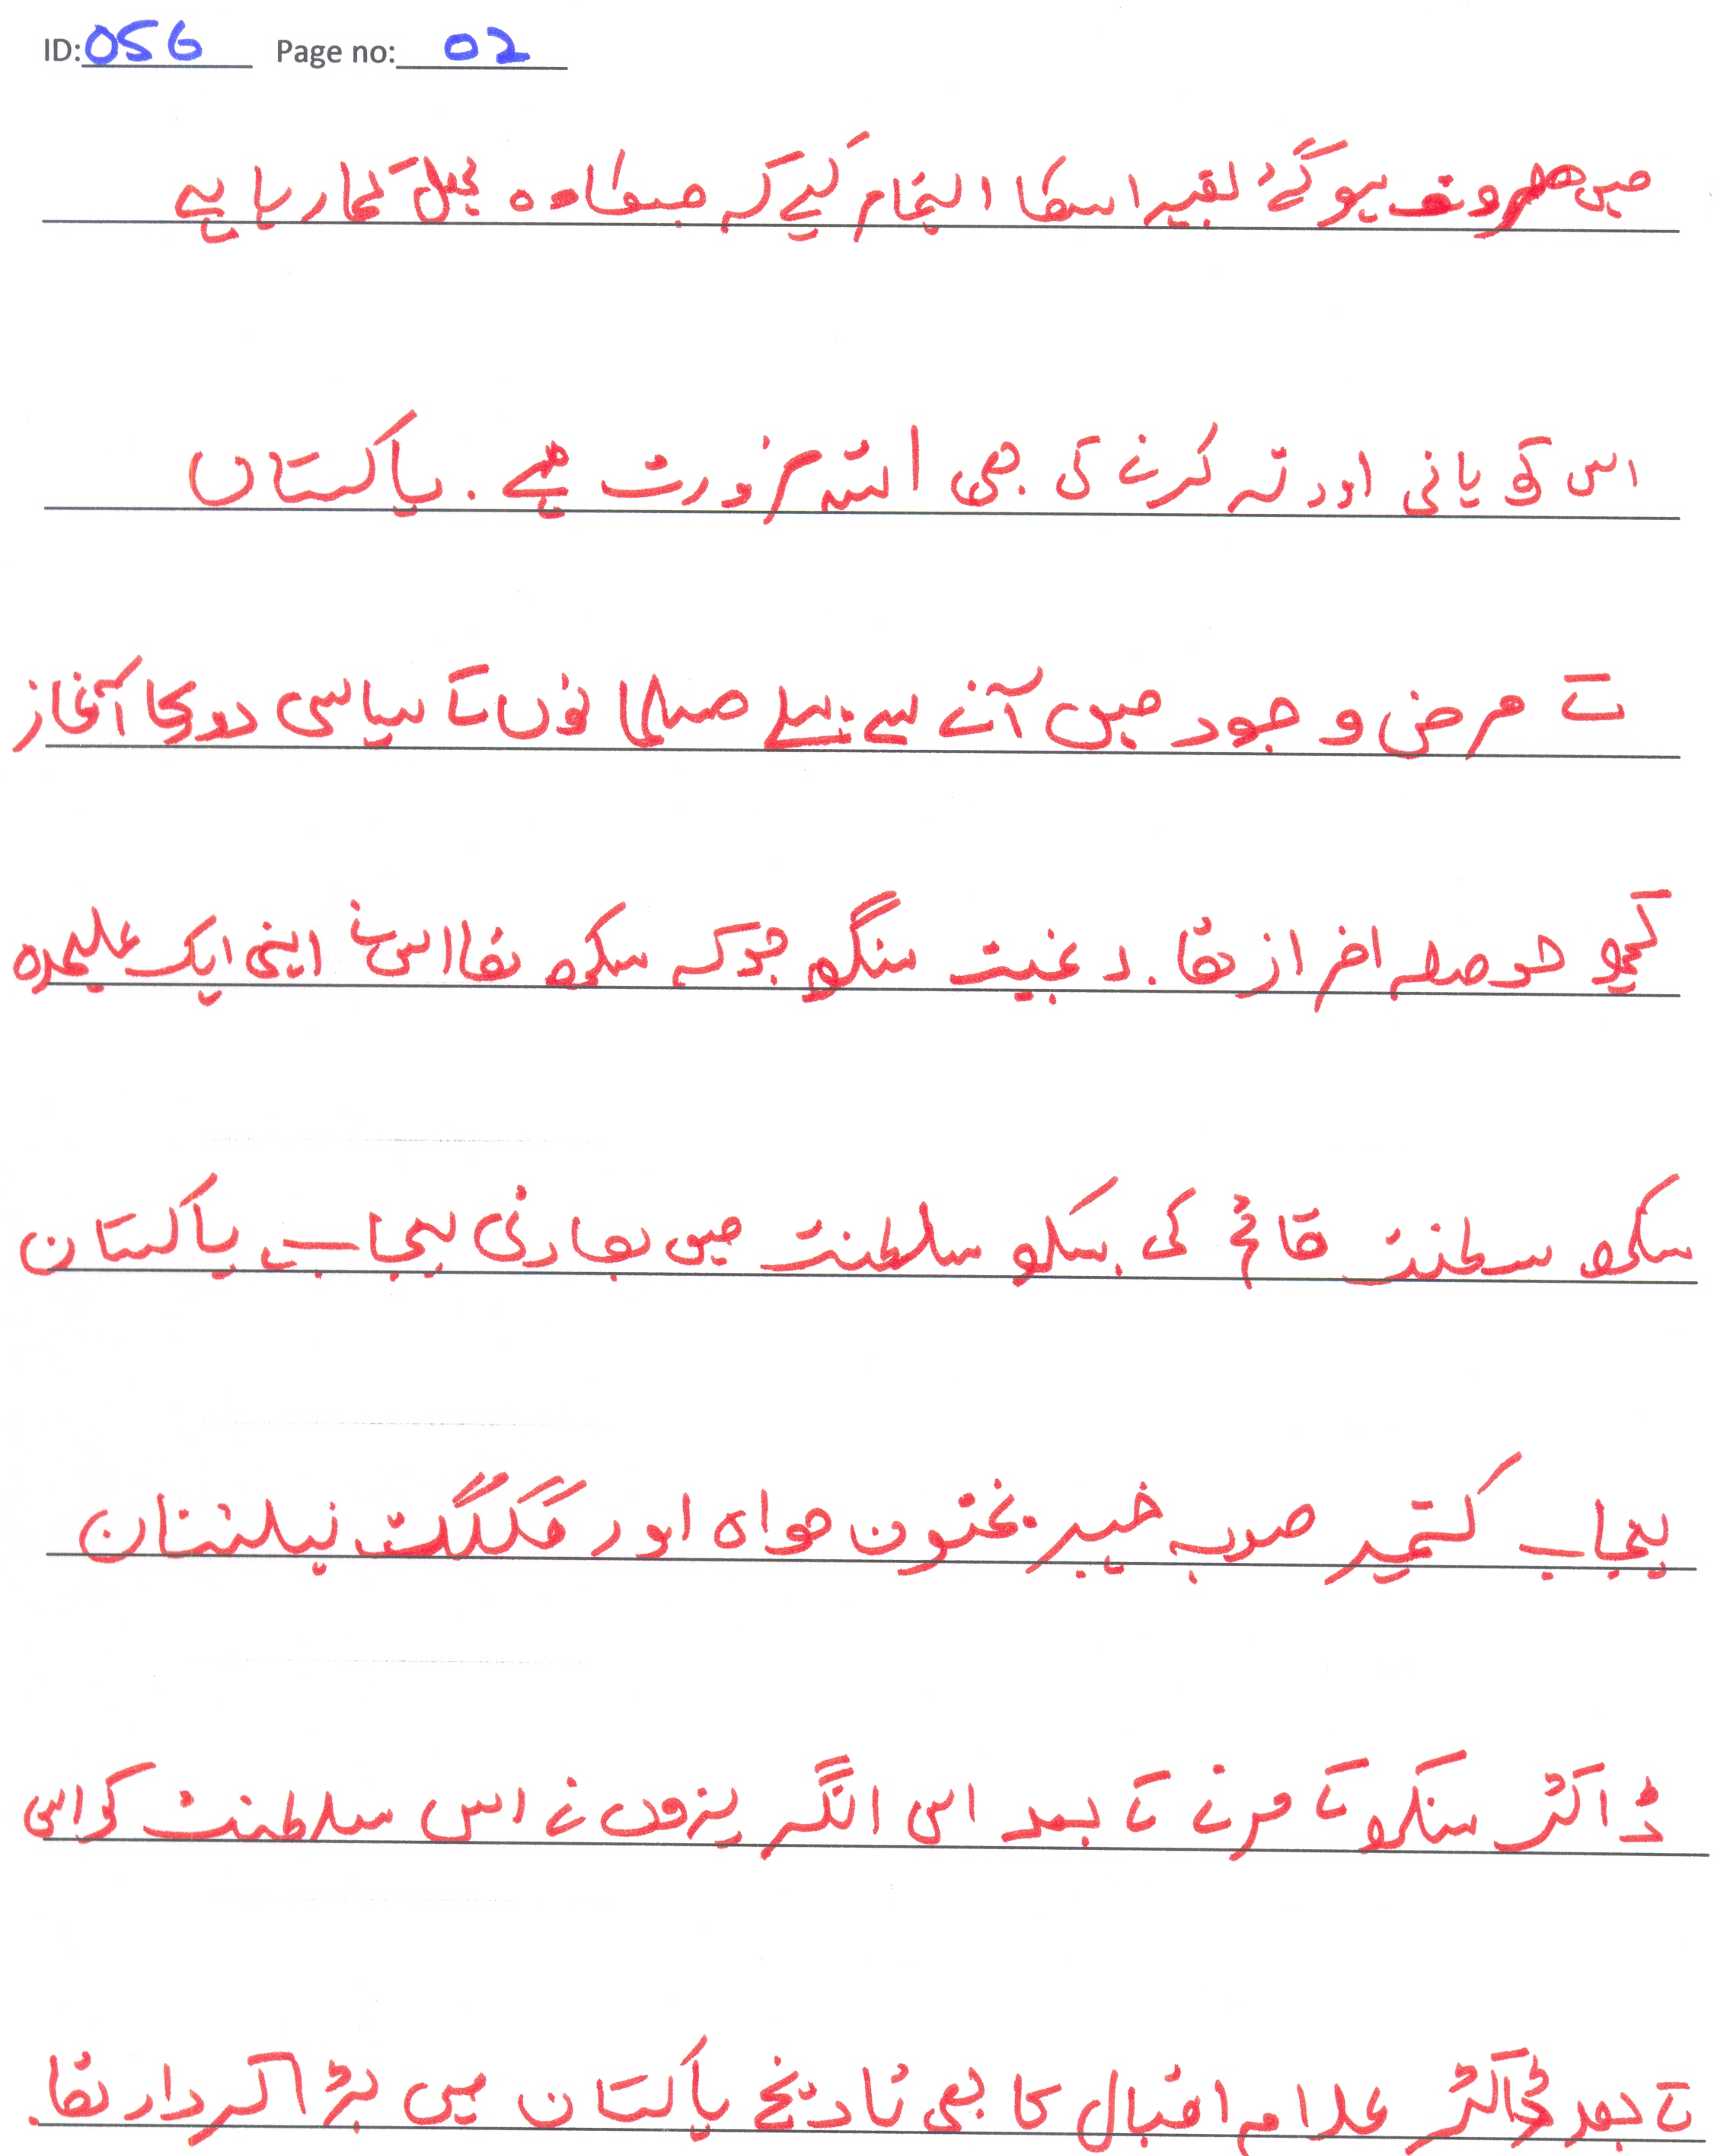 ID: 056 Page no: 02
میں مصروف ہوگئے بقیہ اسکا انجام کیے کہ میٹھا وہ پھل کھا رہا ہے
اس کی یانی اور تہ کرنے کی بھی اشد ضرورت ہے . پاکستان
کے معرض وجود میں آنے سے پہلے مسلمانوں کا سیاسی دور کا آغاز
کچھ حوصلہ افزا نہ تھا. رنجیت سنگھ جو کہ سکھ تھا اس نے اپنی ایک علیحدہ
سکھ سطنت قائم کی سکھ سلطنت میں بھارتی پنجاب پاکستان
پنجاب کشمیر صوبہ خیبر پختون خواہ اور گلگت بلتستان
ڈاکٹر سنگھ کے مرنے کے بعد اس انگریزوں نے اس سلطنت کو اسی
کے بعد ڈاکٹر علامہ اقبال کا بھی تاریخ پاکستان میں بڑا کردار تھا